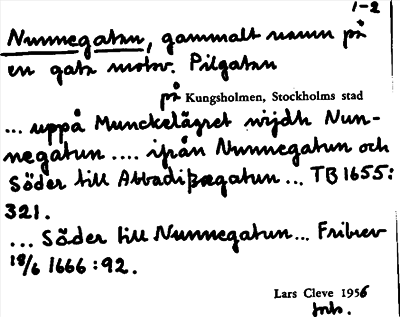 1-2
Nunnegatan, gammalt namn på
en gata motsv. Pilgatan
på Kungsholmen, Stockholms stad
... uppå Munckelägret wijdh Nun-
negatun .... ifrån Nunnegatun och
Söder till Abbadißægatun ... TB 1655:
321.
... Söder till Nunnegatun ... Fribrev
18/6 1666:92.
Lars Cleve 1956